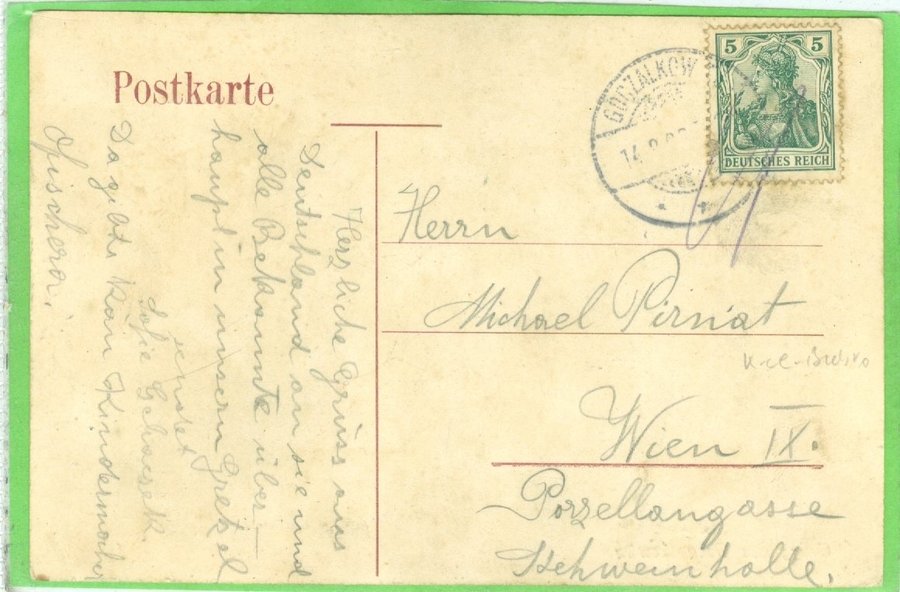 Postkarte
GOCZALKOW
14.
5 5
DEUTSCHES REICH
Herrn
Michael Pirnat
Wien IX.
Porzellangasse
Schweinhalle.
Herzliche Grüss aus
Deutschland an sie und
alle Bekannte über-
haupt in unsern Gretel
Sofie
Da gibts kan Kindermacher